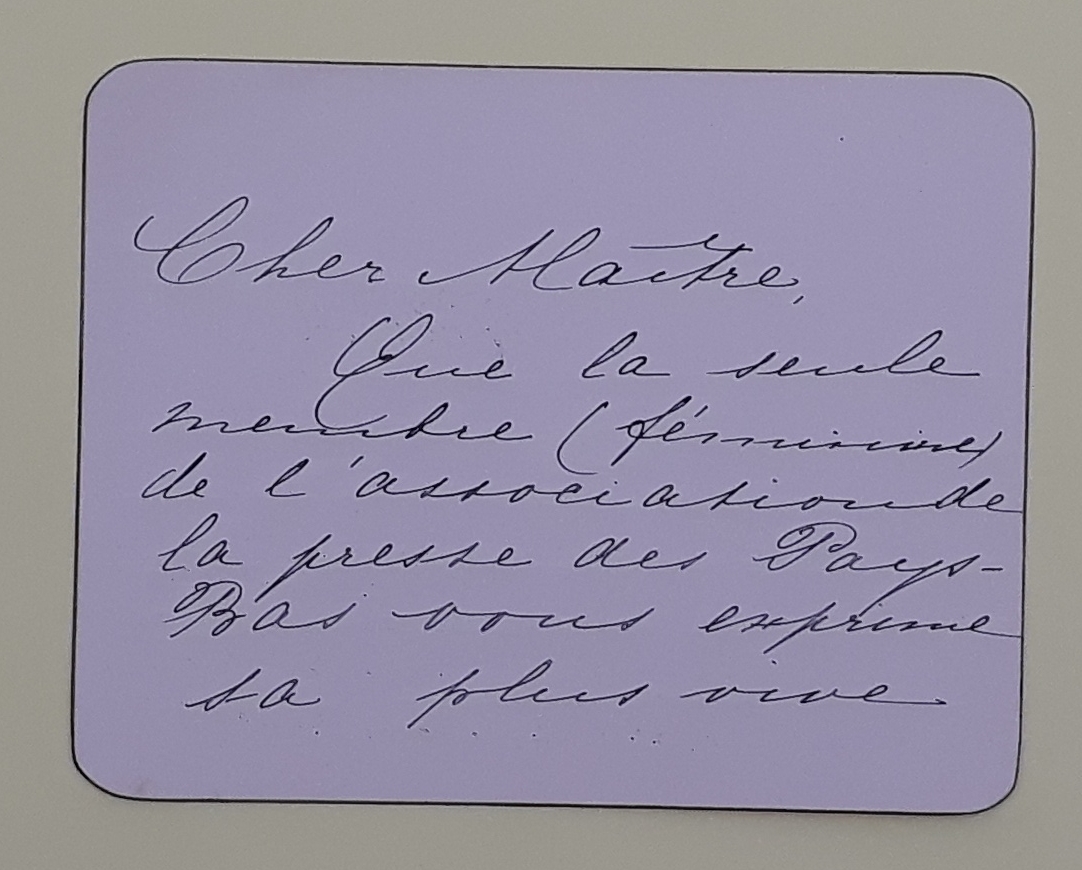 Cher Maître,
Que la seule
membre (féminine)
de l'association de
la presse des Pays-
Bas vous exprime
sa plus vive